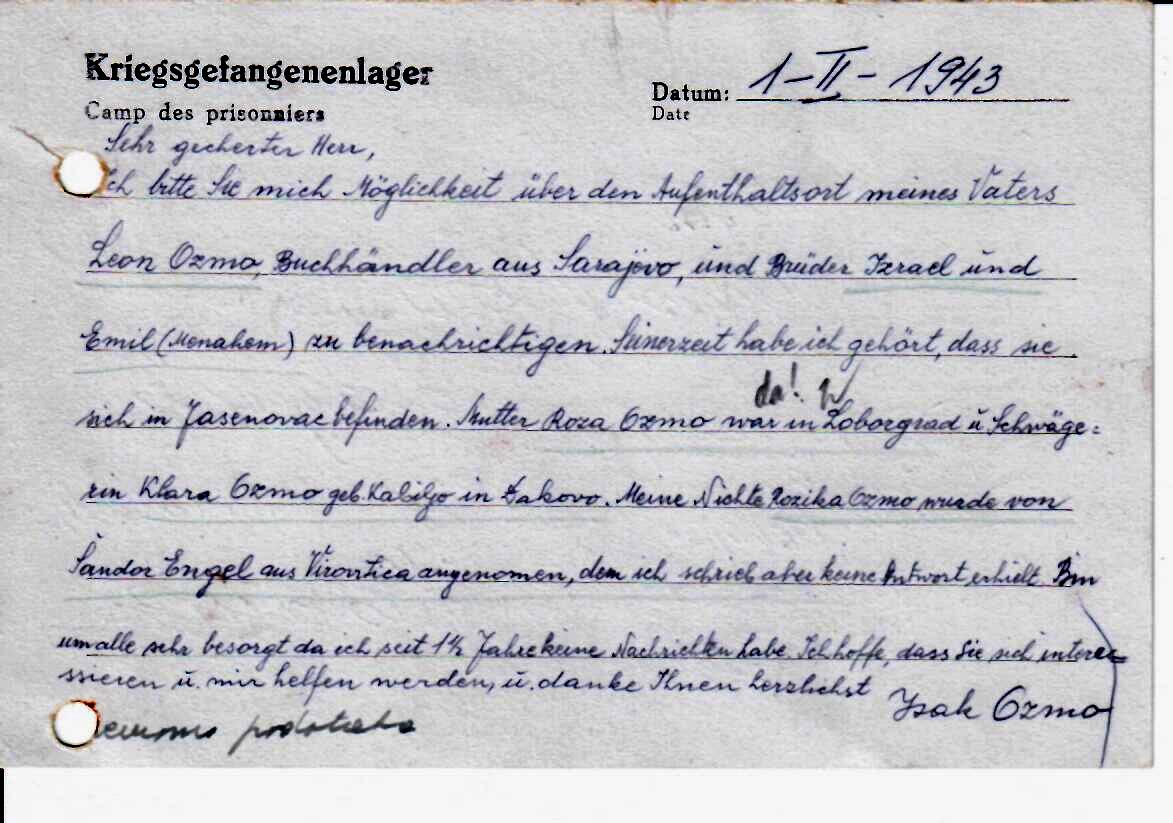 Kriegsgefangenenlager
Camp des prisonniers
Datum: 1-II-1943
Date
Sehr geeherter Herr,
Ich bitte Sie mich Möglichkeit über den Aufenthaltsort meines Vaters
Leon Ozmo, Buchhändler aus Sarajevo, und Brüder Izrael und
Emil (Menahem) zu benachrichtigen. Seinerzeit habe ich gehört, dass sie
da!
sich in Jasenovac befinden. Mutter Roza Ozmo war in Loborgrad u Schwäge=
rin Klara Ozmo geb. Kabiljo in Đakovo. Meine Nichte Rozika Ozmo wurde von
Šandor Engel aus Virovitica angenomen, dem ich schrieb aber keine Antwort erhielt. Bin
um alle sehr besorgt da ich seit 1½ Jahre keine Nachrichten habe. Ich hoffe, dass Sie sich intere=
ssieren u. mir helfen werden, u. danke Ihnen herzlichst
Isak Ozmo
podataka